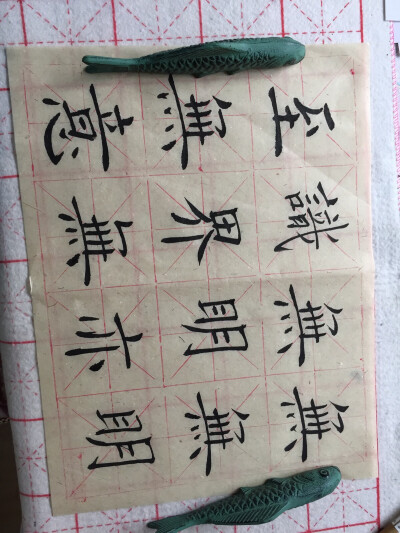 至無意
識界無
無明亦
無無明